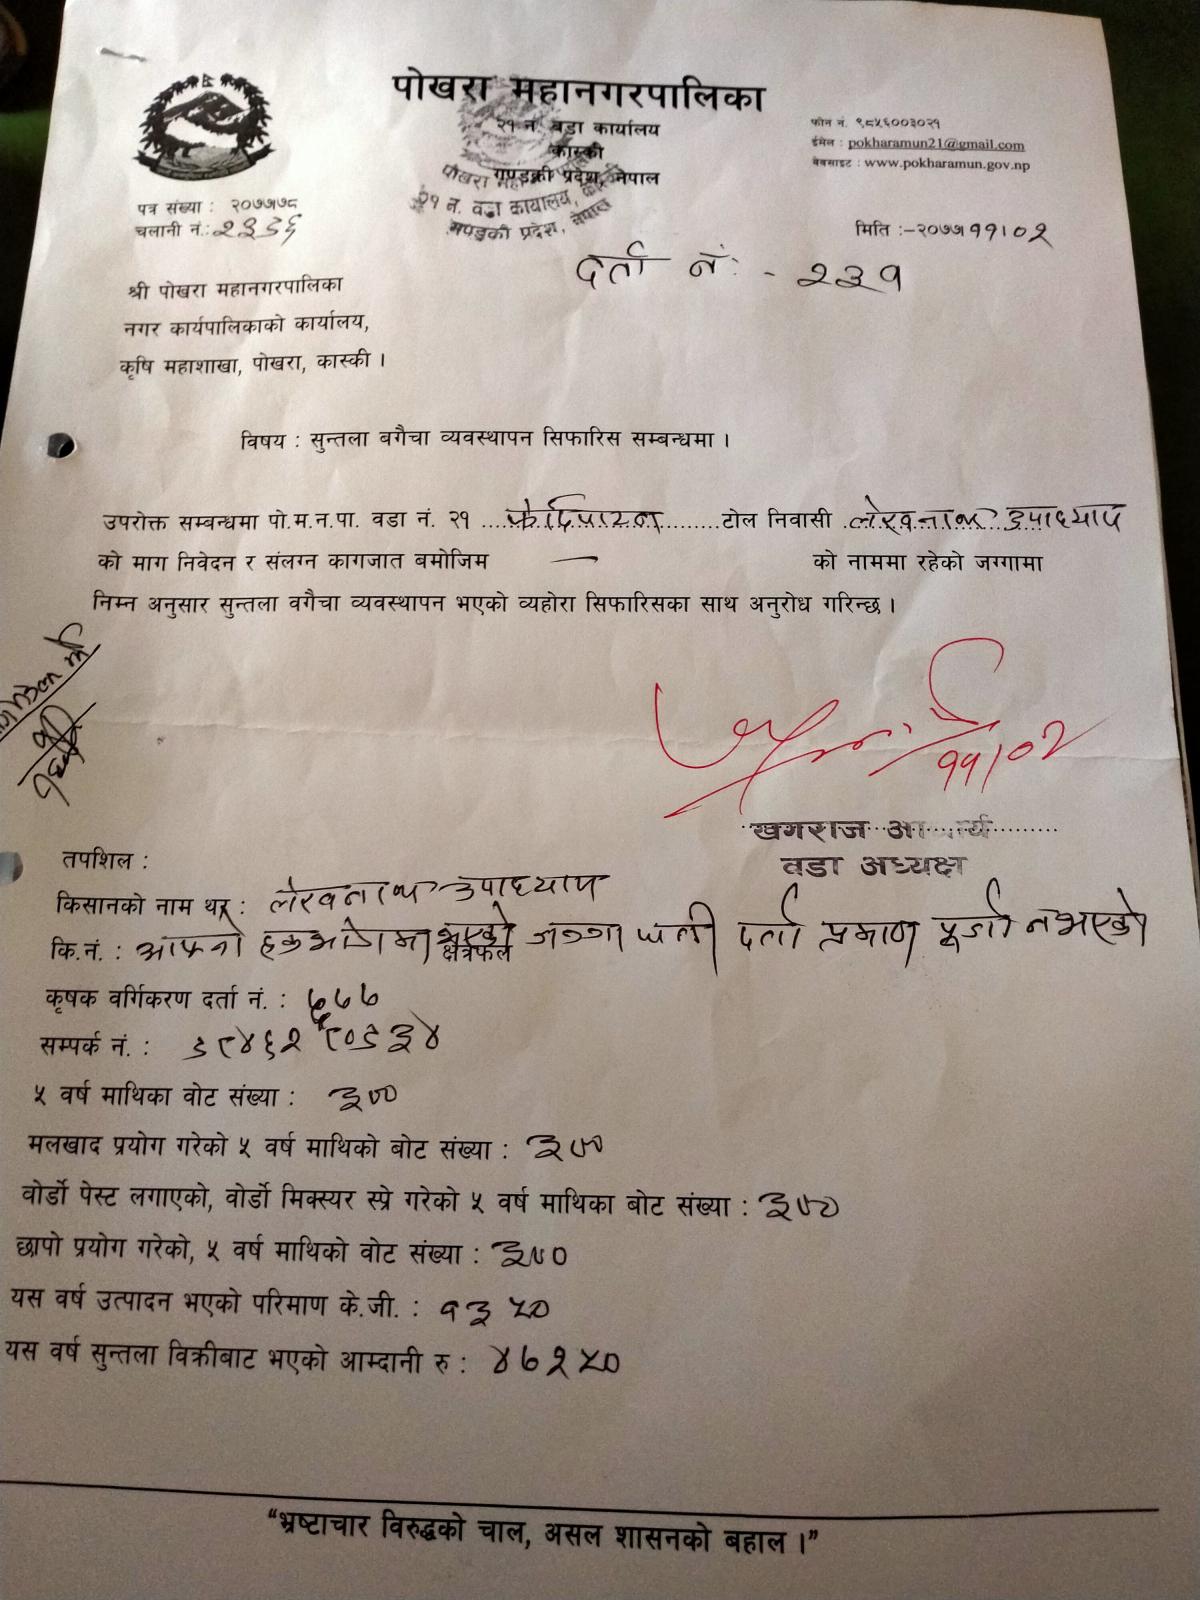 पोखरा महानगरपालिका
२१ न. वडा कार्यालय
कास्की
गण्डकी प्रदेश, नेपाल
फोन नं. ९८५६००३०२१
ईमेल : pokharamun21@gmail.com
वेबसाइट : www.pokharamun.gov.np
पोखरा
२१ न. वडा कार्यालय,
गण्डकी प्रदेश, नेपाल
पत्र संख्या : २०७७।७८
चलानी नं.:
मिति :-२०७७।११।०२
दर्ता नं: - २३१
श्री पोखरा महानगरपालिका
नगर कार्यपालिकाको कार्यालय,
कृषि महाशाखा, पोखरा, कास्की ।
विषय : सुन्तला बगैचा व्यवस्थापन सिफारिस सम्बन्धमा ।
उपरोक्त सम्बन्धमा पो.म.न.पा. वडा नं. २१ टोल निवासी लेखनाथ उपाध्याय
को माग निवेदन र संलग्न कागजात बमोजिम — को नाममा रहेको जग्गामा
निम्न अनुसार सुन्तला वगैचा व्यवस्थापन भएको व्यहोरा सिफारिसका साथ अनुरोध गरिन्छ ।
११।०२
खगराज आचार्य
वडा अध्यक्ष
तपशिल :
किसानको नाम थर : लेखनाथ उपाध्याय
कि.नं. : आफ्नो हकभोगमा भएको क्षेत्रफल जग्गा धनी दर्ता प्रमाण पूर्जा नभएको
कृषक वर्गिकरण दर्ता नं. :
सम्पर्क नं. :
५ वर्ष माथिका वोट संख्या : ३००
मलखाद प्रयोग गरेको ५ वर्ष माथिको बोट संख्या : ३००
वोर्डो पेस्ट लगाएको, वोर्डो मिक्स्यर स्प्रे गरेको ५ वर्ष माथिका बोट संख्या : ३००
छापो प्रयोग गरेको, ५ वर्ष माथिको वोट संख्या : ३००
यस वर्ष उत्पादन भएको परिमाण के.जी. : १३५०
यस वर्ष सुन्तला विक्रीबाट भएको आम्दानी रु : ४७२५०
“भ्रष्टाचार विरुद्धको चाल, असल शासनको बहाल ।”